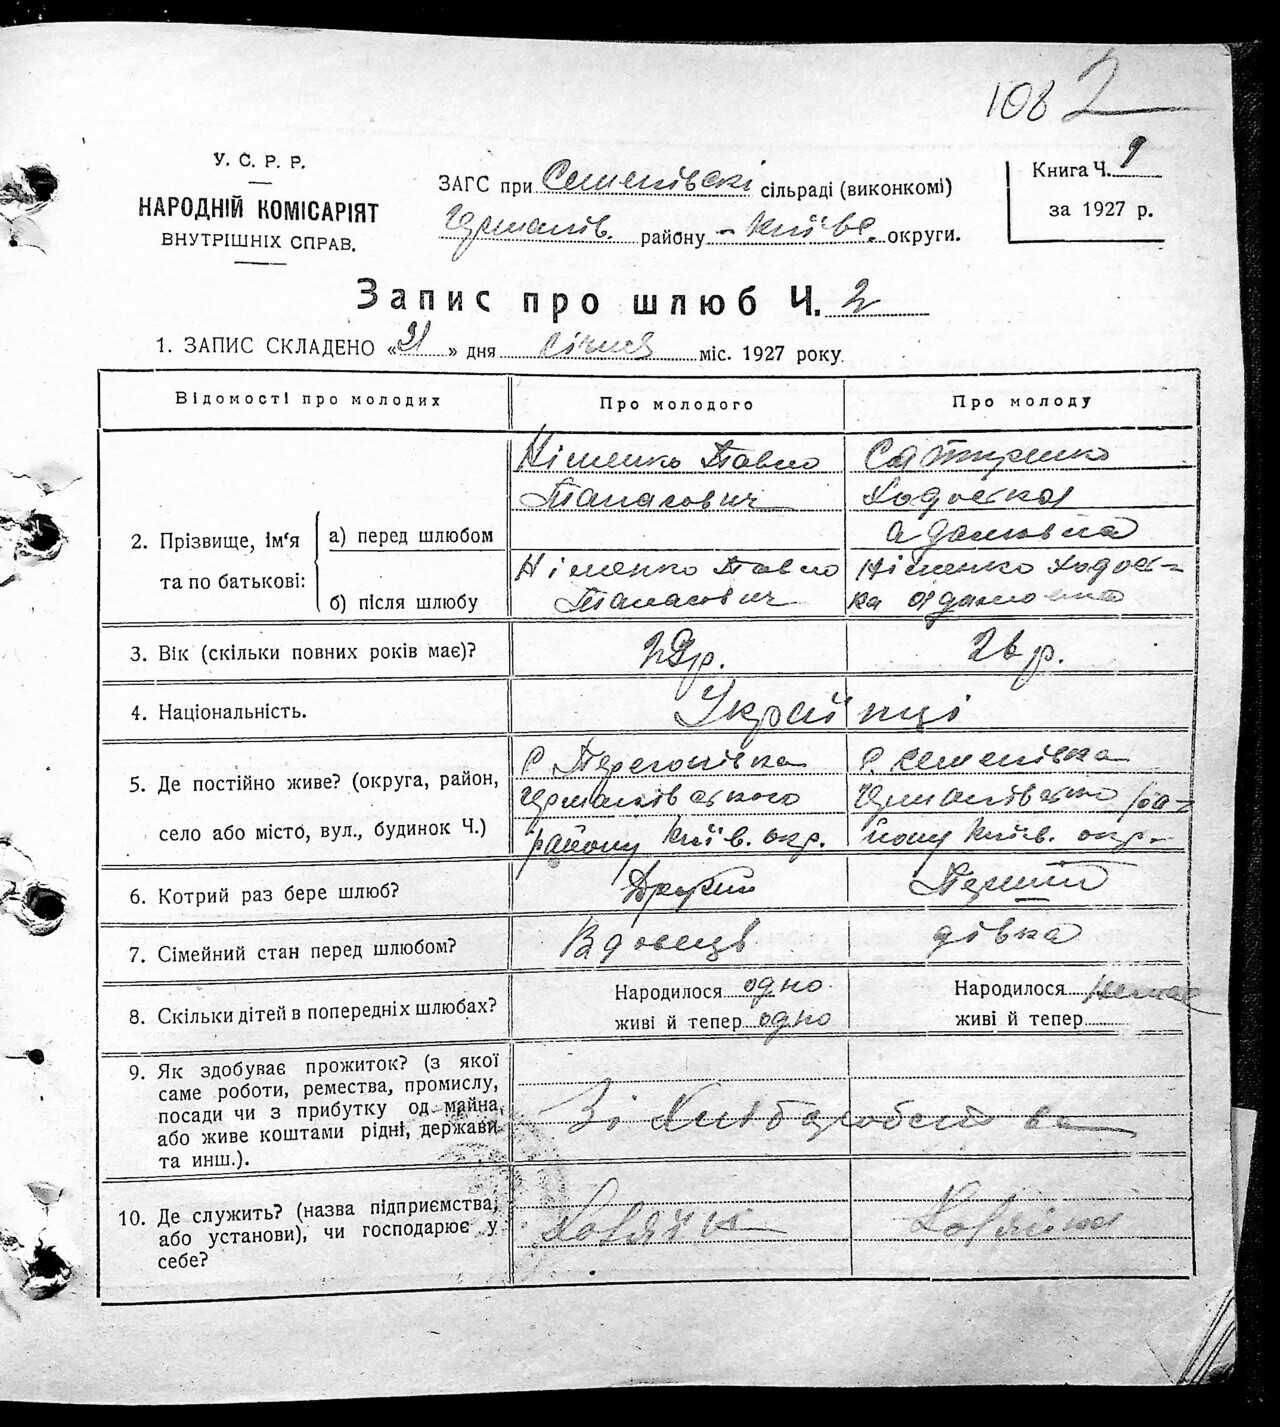 108 2
У. С. Р. Р.
НАРОДНІЙ КОМІСАРІЯТ
ВНУТРІШНІХ СПРАВ.
ЗАГС при Семенівскі сільраді (виконкомі)
району – Київс. округи.
Книга Ч. 1
за 1927 р.
Запис про шлюб Ч. 2
1. ЗАПИС СКЛАДЕНО «21» дня січня міс. 1927 року.
Відомості про молодих
Про молодого
Про молоду
2. Прізвище, ім'я та по батькові:
а) перед шлюбом
Німенко Павло
Танасович
Сатиренко
Ходоска
Адамовна
б) після шлюбу
Німенко Павло
Танасович
Німенко Ходос-
ка Адамовна
3. Вік (скільки повних років має)?
29р.
26 р.
4. Національність.
Українці
5. Де постійно живе? (округа, район,
село або місто, вул., будинок Ч.)
С. Перегонівка
району Київ. окр.
С. Семенівка
ра-
йону Київ. окр.
6. Котрий раз бере шлюб?
Другий
Перший
7. Сімейний стан перед шлюбом?
Вдовець
дівка
8. Скільки дітей в попередніх шлюбах?
Народилося одно
живі й тепер одно
Народилося немає
живі й тепер
9. Як здобуває прожиток? (з якої
саме роботи, ремества, промислу,
посади чи з прибутку од майна,
або живе коштами рідні, держави
та инш.).
Зі Хліборобства
10. Де служить? (назва підприємства,
або установи), чи господарює у
себе?
Хозяїн
Хозяйка